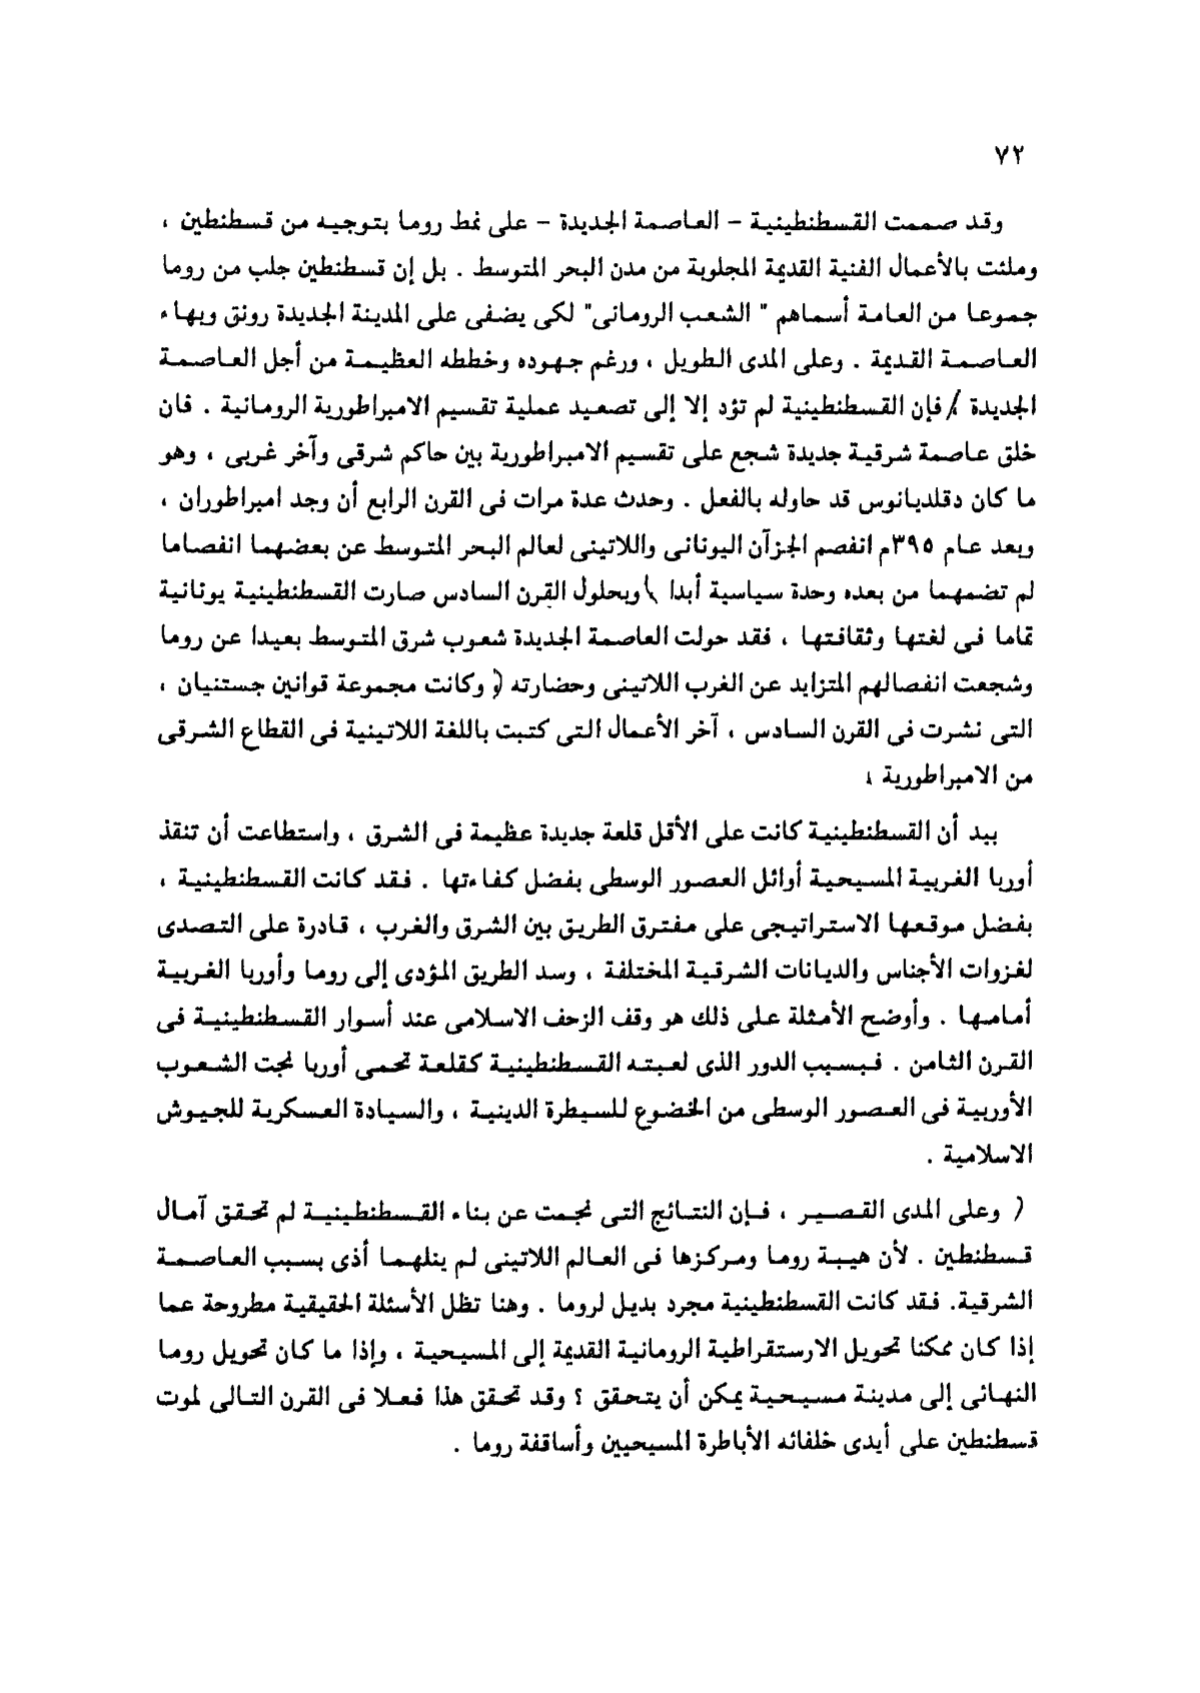 ٧٢
وقد صممت القسطنطينية - العاصمة الجديدة - على نمط روما بتوجيه من قسطنطين ،
وملئت بالأعمال الفنية القديمة المجلوبة من مدن البحر المتوسط . بل إن قسطنطين جلب من روما
جموعا من العامة أسماهم " الشعب الرومانى" لكى يضفى على المدينة الجديدة رونق وبهاء
العاصمة القديمة . وعلى المدى الطويل ، ورغم جهوده وخططه العظيمة من أجل العاصمة
الجديدة ، فإن القسطنطينية لم تؤد إلا إلى تصعيد عملية تقسيم الامبراطورية الرومانية . فان
خلق عاصمة شرقية جديدة شجع على تقسيم الامبراطورية بين حاكم شرقى وآخر غربى ، وهو
ما كان دقلديانوس قد حاوله بالفعل . وحدث عدة مرات فى القرن الرابع أن وجد امبراطوران ،
وبعد عام ٣٩٥م انفصم الجزآن اليونانى واللاتينى لعالم البحر المتوسط عن بعضهما انفصاما
لم تضمهما من بعده وحدة سياسية أبدا \ وبحلول القرن السادس صارت القسطنطينية يونانية
تماما فى لغتها وثقافتها ، فقد حولت العاصمة الجديدة شعوب شرق المتوسط بعيدا عن روما
وشجعت انفصالهم المتزايد عن الغرب اللاتينى وحضارته ( وكانت مجموعة قوانين جستنيان ،
التى نشرت فى القرن السادس ، آخر الأعمال التى كتبت باللغة اللاتينية فى القطاع الشرقى
من الامبراطورية .
بيد أن القسطنطينية كانت على الأقل قلعة جديدة عظيمة فى الشرق ، واستطاعت أن تنقذ
أوربا الغربية المسيحية أوائل العصور الوسطى بفضل كفاءتها . فقد كانت القسطنطينية ،
بفضل موقعها الاستراتيجى على مفترق الطريق بين الشرق والغرب ، قادرة على التصدى
لغزوات الأجناس والديانات الشرقية المختلفة ، وسد الطريق المؤدى إلى روما وأوربا الغربية
أمامها . وأوضح الأمثلة على ذلك هو وقف الزحف الاسلامى عند أسوار القسطنطينية فى
القرن الثامن . فبسبب الدور الذى لعبته القسطنطينية كقلعة تحمى أوربا نجت الشعوب
الأوربية فى العصور الوسطى من الخضوع للسيطرة الدينية ، والسيادة العسكرية للجيوش
الاسلامية .
( وعلى المدى القصير ، فإن النتائج التى نجمت عن بناء القسطنطينية لم تحقق آمال
قسطنطين . لأن هيبة روما ومركزها فى العالم اللاتينى لم ينلهما أذى بسبب العاصمة
الشرقية. فقد كانت القسطنطينية مجرد بديل لروما . وهنا تظل الأسئلة الحقيقية مطروحة عما
إذا كان ممكنا تحويل الارستقراطية الرومانية القديمة إلى المسيحية ، وإذا ما كان تحويل روما
النهائى إلى مدينة مسيحية يمكن أن يتحقق ؟ وقد تحقق هذا فعلا فى القرن التالى لموت
قسطنطين على أيدى خلفائه الأباطرة المسيحيين وأساقفة روما .